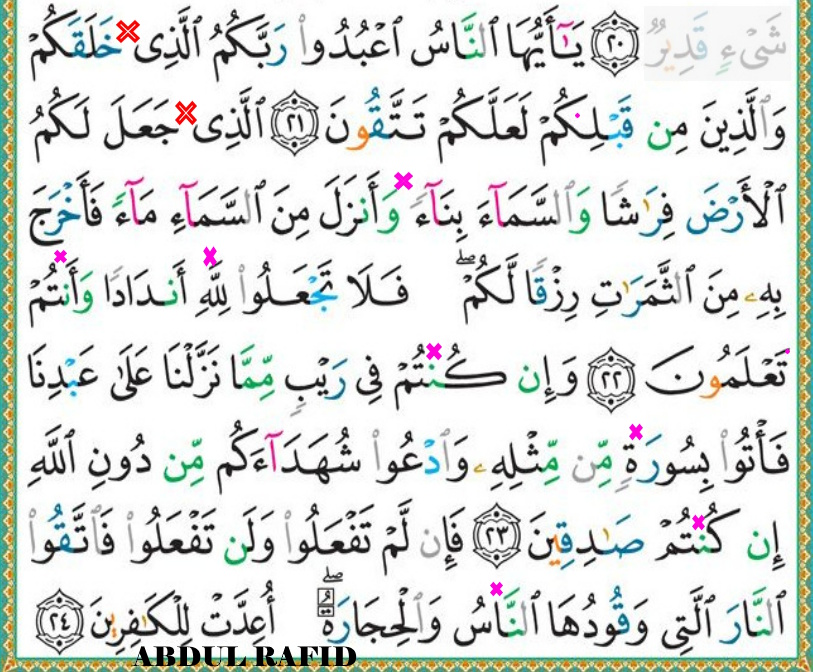 شَىْءٍ قَدِيرٌ ٢٠ يَـٰٓأَيُّهَا ٱلنَّاسُ ٱعْبُدُوا۟ رَبَّكُمُ ٱلَّذِى خَلَقَكُمْ
وَٱلَّذِينَ مِن قَبْلِكُمْ لَعَلَّكُمْ تَتَّقُونَ ٢١ ٱلَّذِى جَعَلَ لَكُمُ
ٱلْأَرْضَ فِرَٰشًا وَٱلسَّمَآءَ بِنَآءً وَأَنزَلَ مِنَ ٱلسَّمَآءِ مَآءً فَأَخْرَجَ
بِهِۦ مِنَ ٱلثَّمَرَٰتِ رِزْقًا لَّكُمْ ۖ فَلَا تَجْعَلُوا۟ لِلَّهِ أَندَادًا وَأَنتُمْ
تَعْلَمُونَ ٢٢ وَإِن كُنتُمْ فِى رَيْبٍ مِّمَّا نَزَّلْنَا عَلَىٰ عَبْدِنَا
فَأْتُوا۟ بِسُورَةٍ مِّن مِّثْلِهِۦ وَٱدْعُوا۟ شُهَدَآءَكُم مِّن دُونِ ٱللَّهِ
إِن كُنتُمْ صَـٰدِقِينَ ٢٣ فَإِن لَّمْ تَفْعَلُوا۟ وَلَن تَفْعَلُوا۟ فَٱتَّقُوا۟
ٱلنَّارَ ٱلَّتِى وَقُودُهَا ٱلنَّاسُ وَٱلْحِجَارَةُ ۖ أُعِدَّتْ لِلْكَـٰفِرِينَ ٢٤
ABDUL RAFID